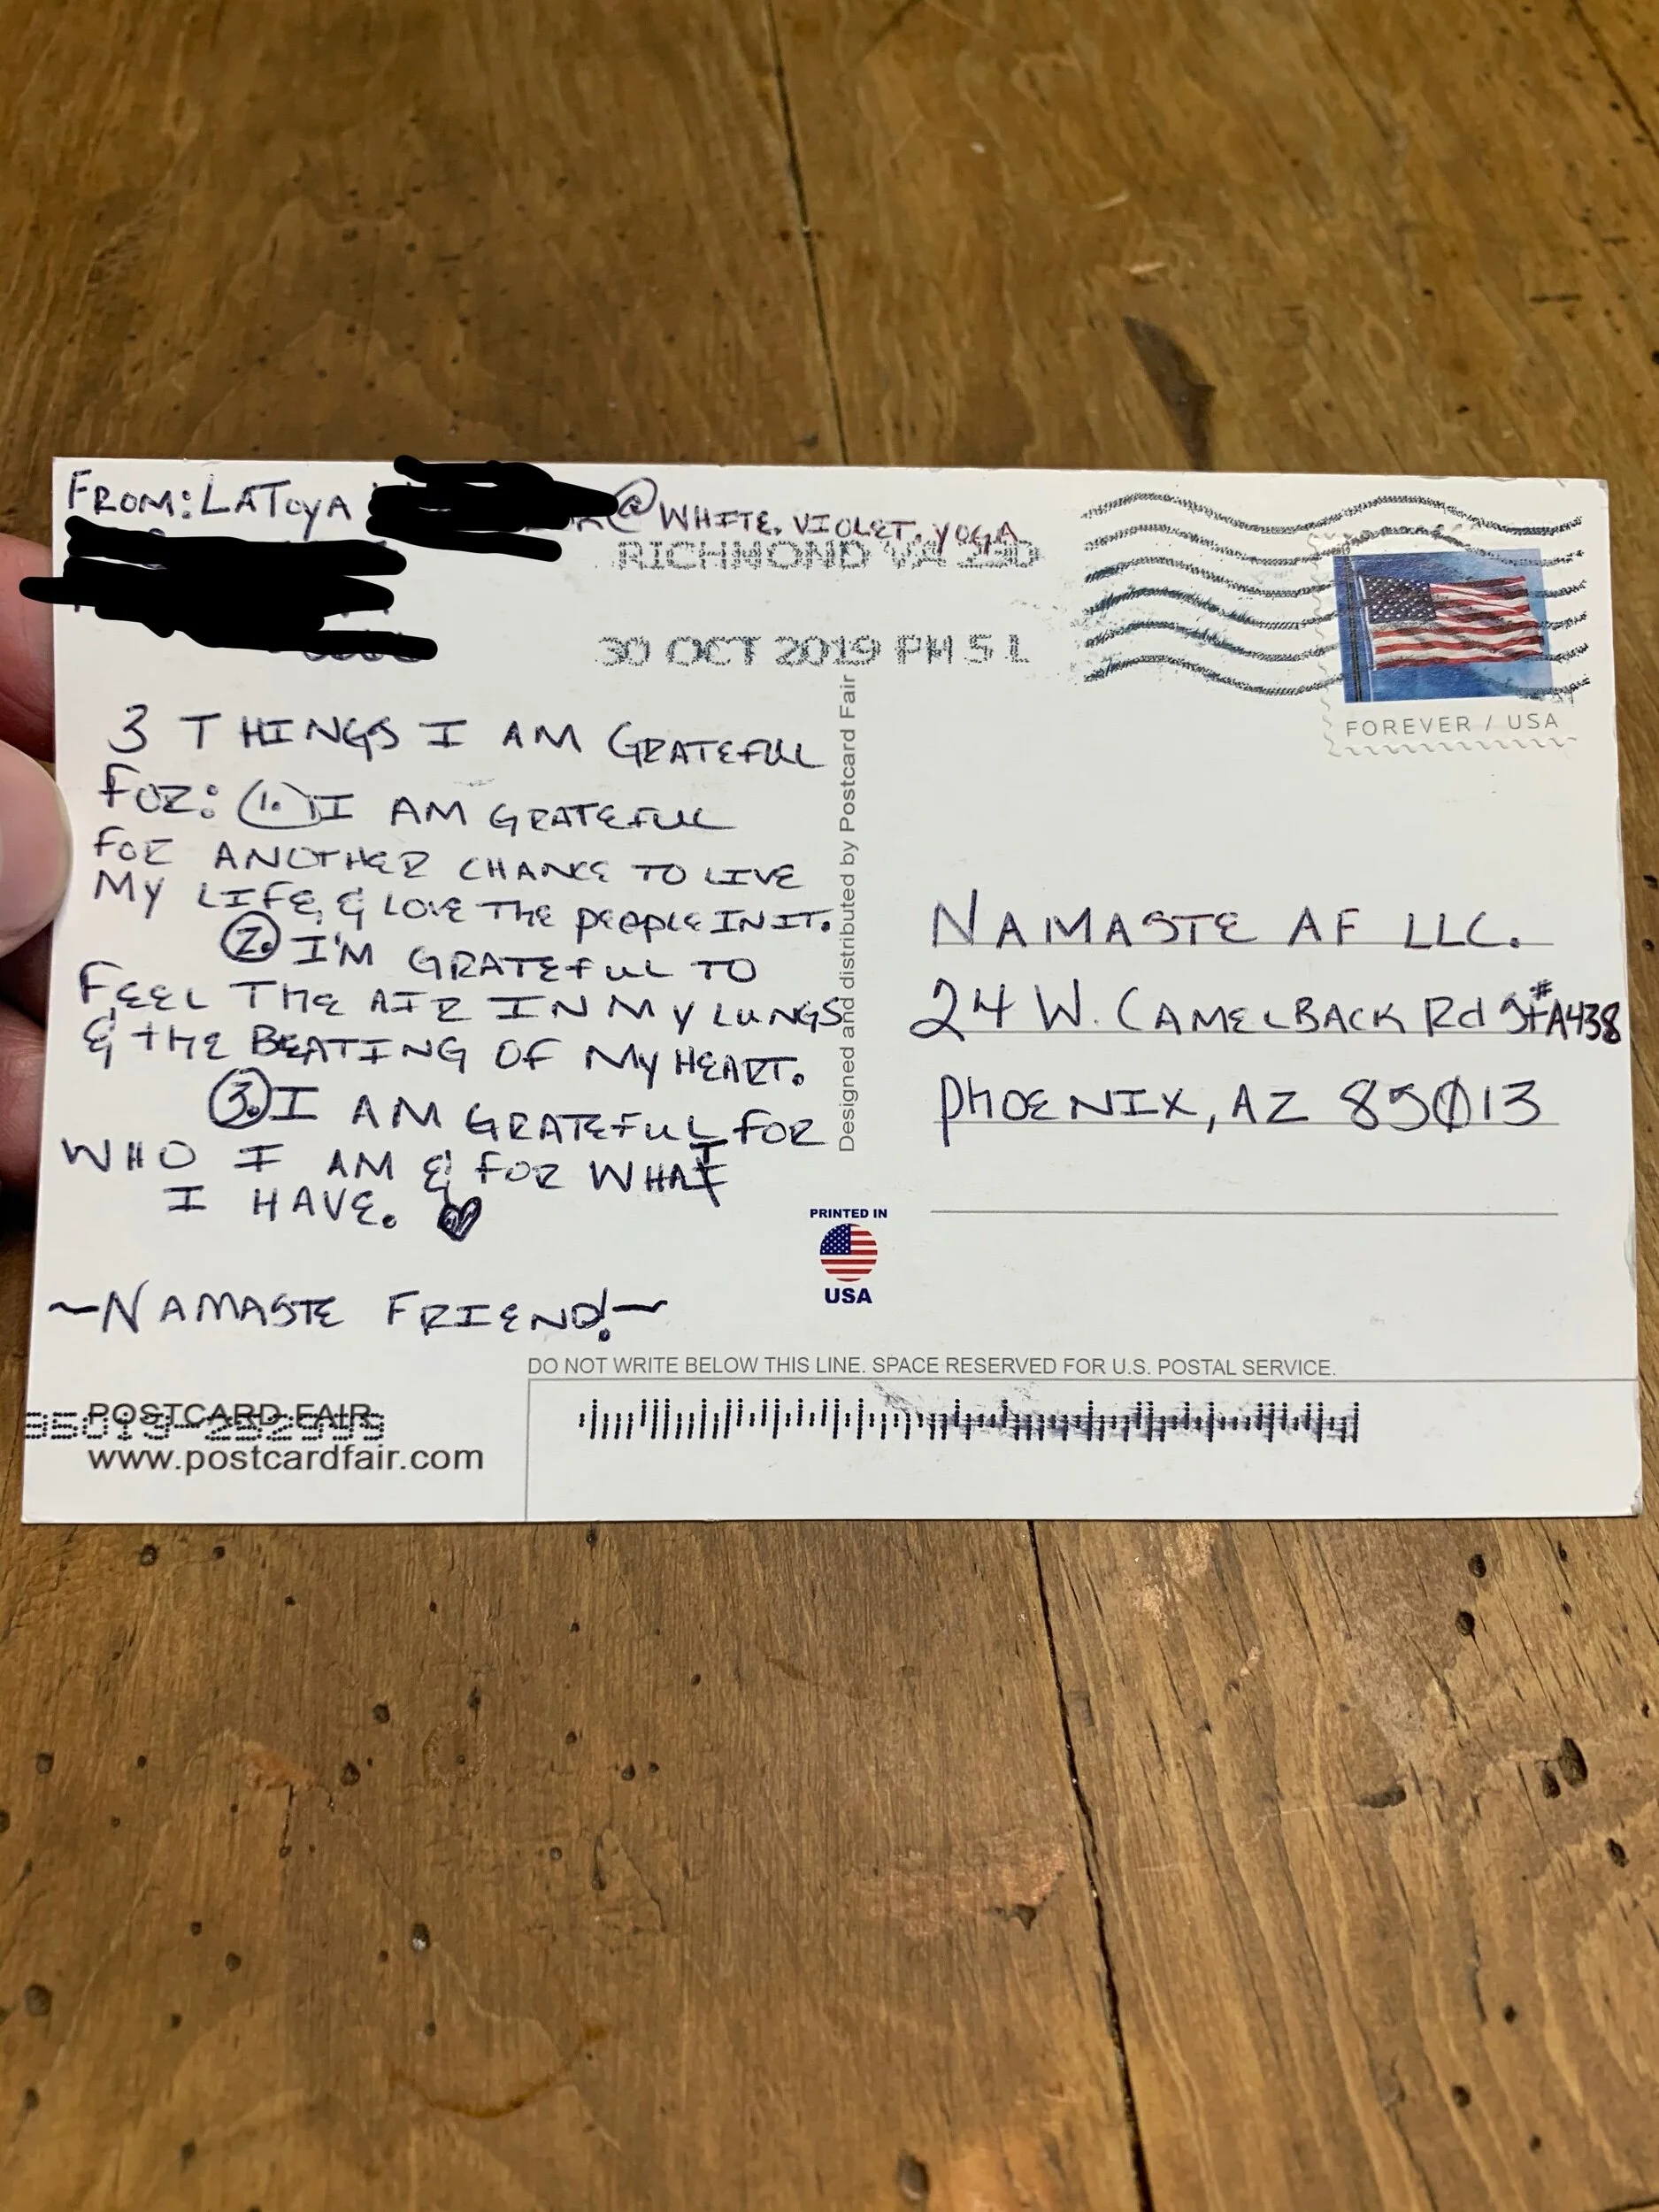 FROM: LATOYA
@WHITE.VIOLET.YOGA
RICHMOND VA 230
30 OCT 2019 PM 5 L
FOREVER / USA
3 THINGS I AM GRATEFUL
FOR: 1. I AM GRATEFUL
FOR ANOTHER CHANCE TO LIVE
MY LIFE, & LOVE THE PEOPLE IN IT.
2. I'M GRATEFUL TO
FEEL THE AIR IN MY LUNGS
& THE BEATING OF MY HEART.
3. I AM GRATEFUL FOR
WHO I AM & FOR WHAT
I HAVE.
~NAMASTE FRIEND!~
Designed and distributed by Postcard Fair
NAMASTE AF LLC.
24 W. CAMELBACK Rd St #A438
PHOENIX, AZ 85013
PRINTED IN
USA
DO NOT WRITE BELOW THIS LINE. SPACE RESERVED FOR U.S. POSTAL SERVICE.
POSTCARD FAIR
www.postcardfair.com